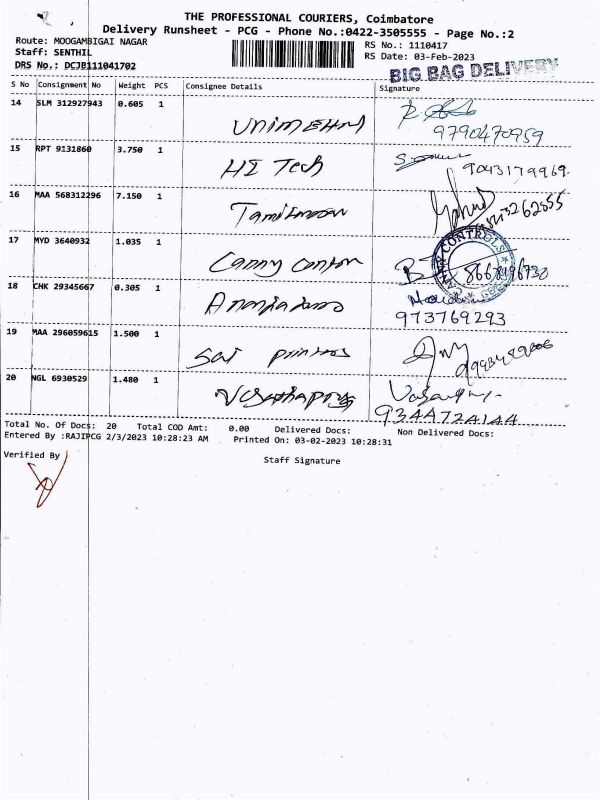 THE PROFESSIONAL COURIERS, Coimbatore
Delivery Runsheet - PCG - Phone No.:0422-3505555 - Page No.:2
Route: MOOGAMBIGAI NAGAR RS No.: 1110417
Staff: SENTHIL RS Date: 03-Feb-2023
DRS No.: DCJP111041702 BIG BAG DELIVERY
S No Consignment No Weight PCS Consignee Details Signature
14 SLM 312927943 0.605 1
9790470959
15 RPT 9131860 3.750 1 HI Tech
9043179969
16 MAA 568312296 7.150 1
17 MYD 3640932 1.035 1
CONTROLS
8668196730
18 CHK 29345667 0.305 1
973769293
19 MAA 296059615 1.500 1 Sai printers
20 NGL 6930529 1.480 1
Total No. Of Docs: 20 Total COD Amt: 0.00 Delivered Docs: Non Delivered Docs:
Entered By :RAJIPCG 2/3/2023 10:28:23 AM Printed On: 03-02-2023 10:28:31
Verified By
Staff Signature